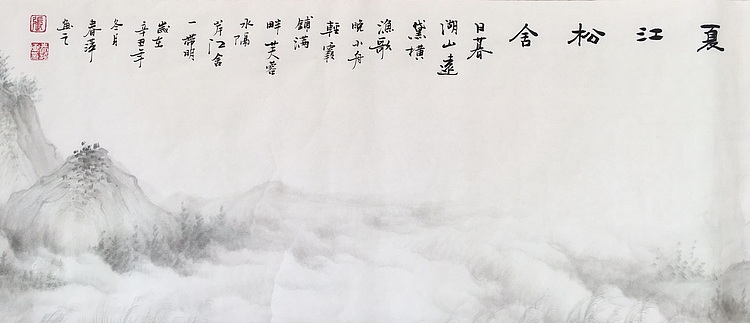 夏江松舍
日暮
湖山遠
黛橫
漁歌
晚小舟
輕霞
鋪滿
畔芙蓉
水隔
岸江舍
一帶明
歲在
辛丑年
冬月
春萍
畫之